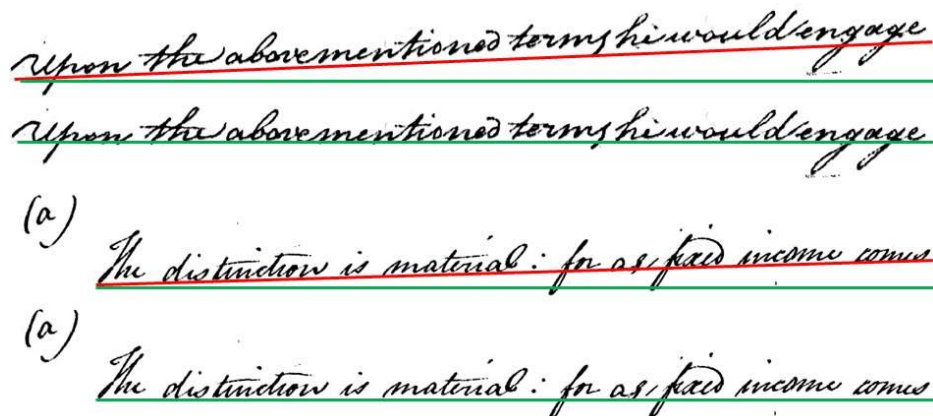 upon the abovementioned terms he would engage
upon the abovementioned terms he would engage
(a)
The distinction is material: for as fixed income comes
(a)
The distinction is material: for as fixed income comes